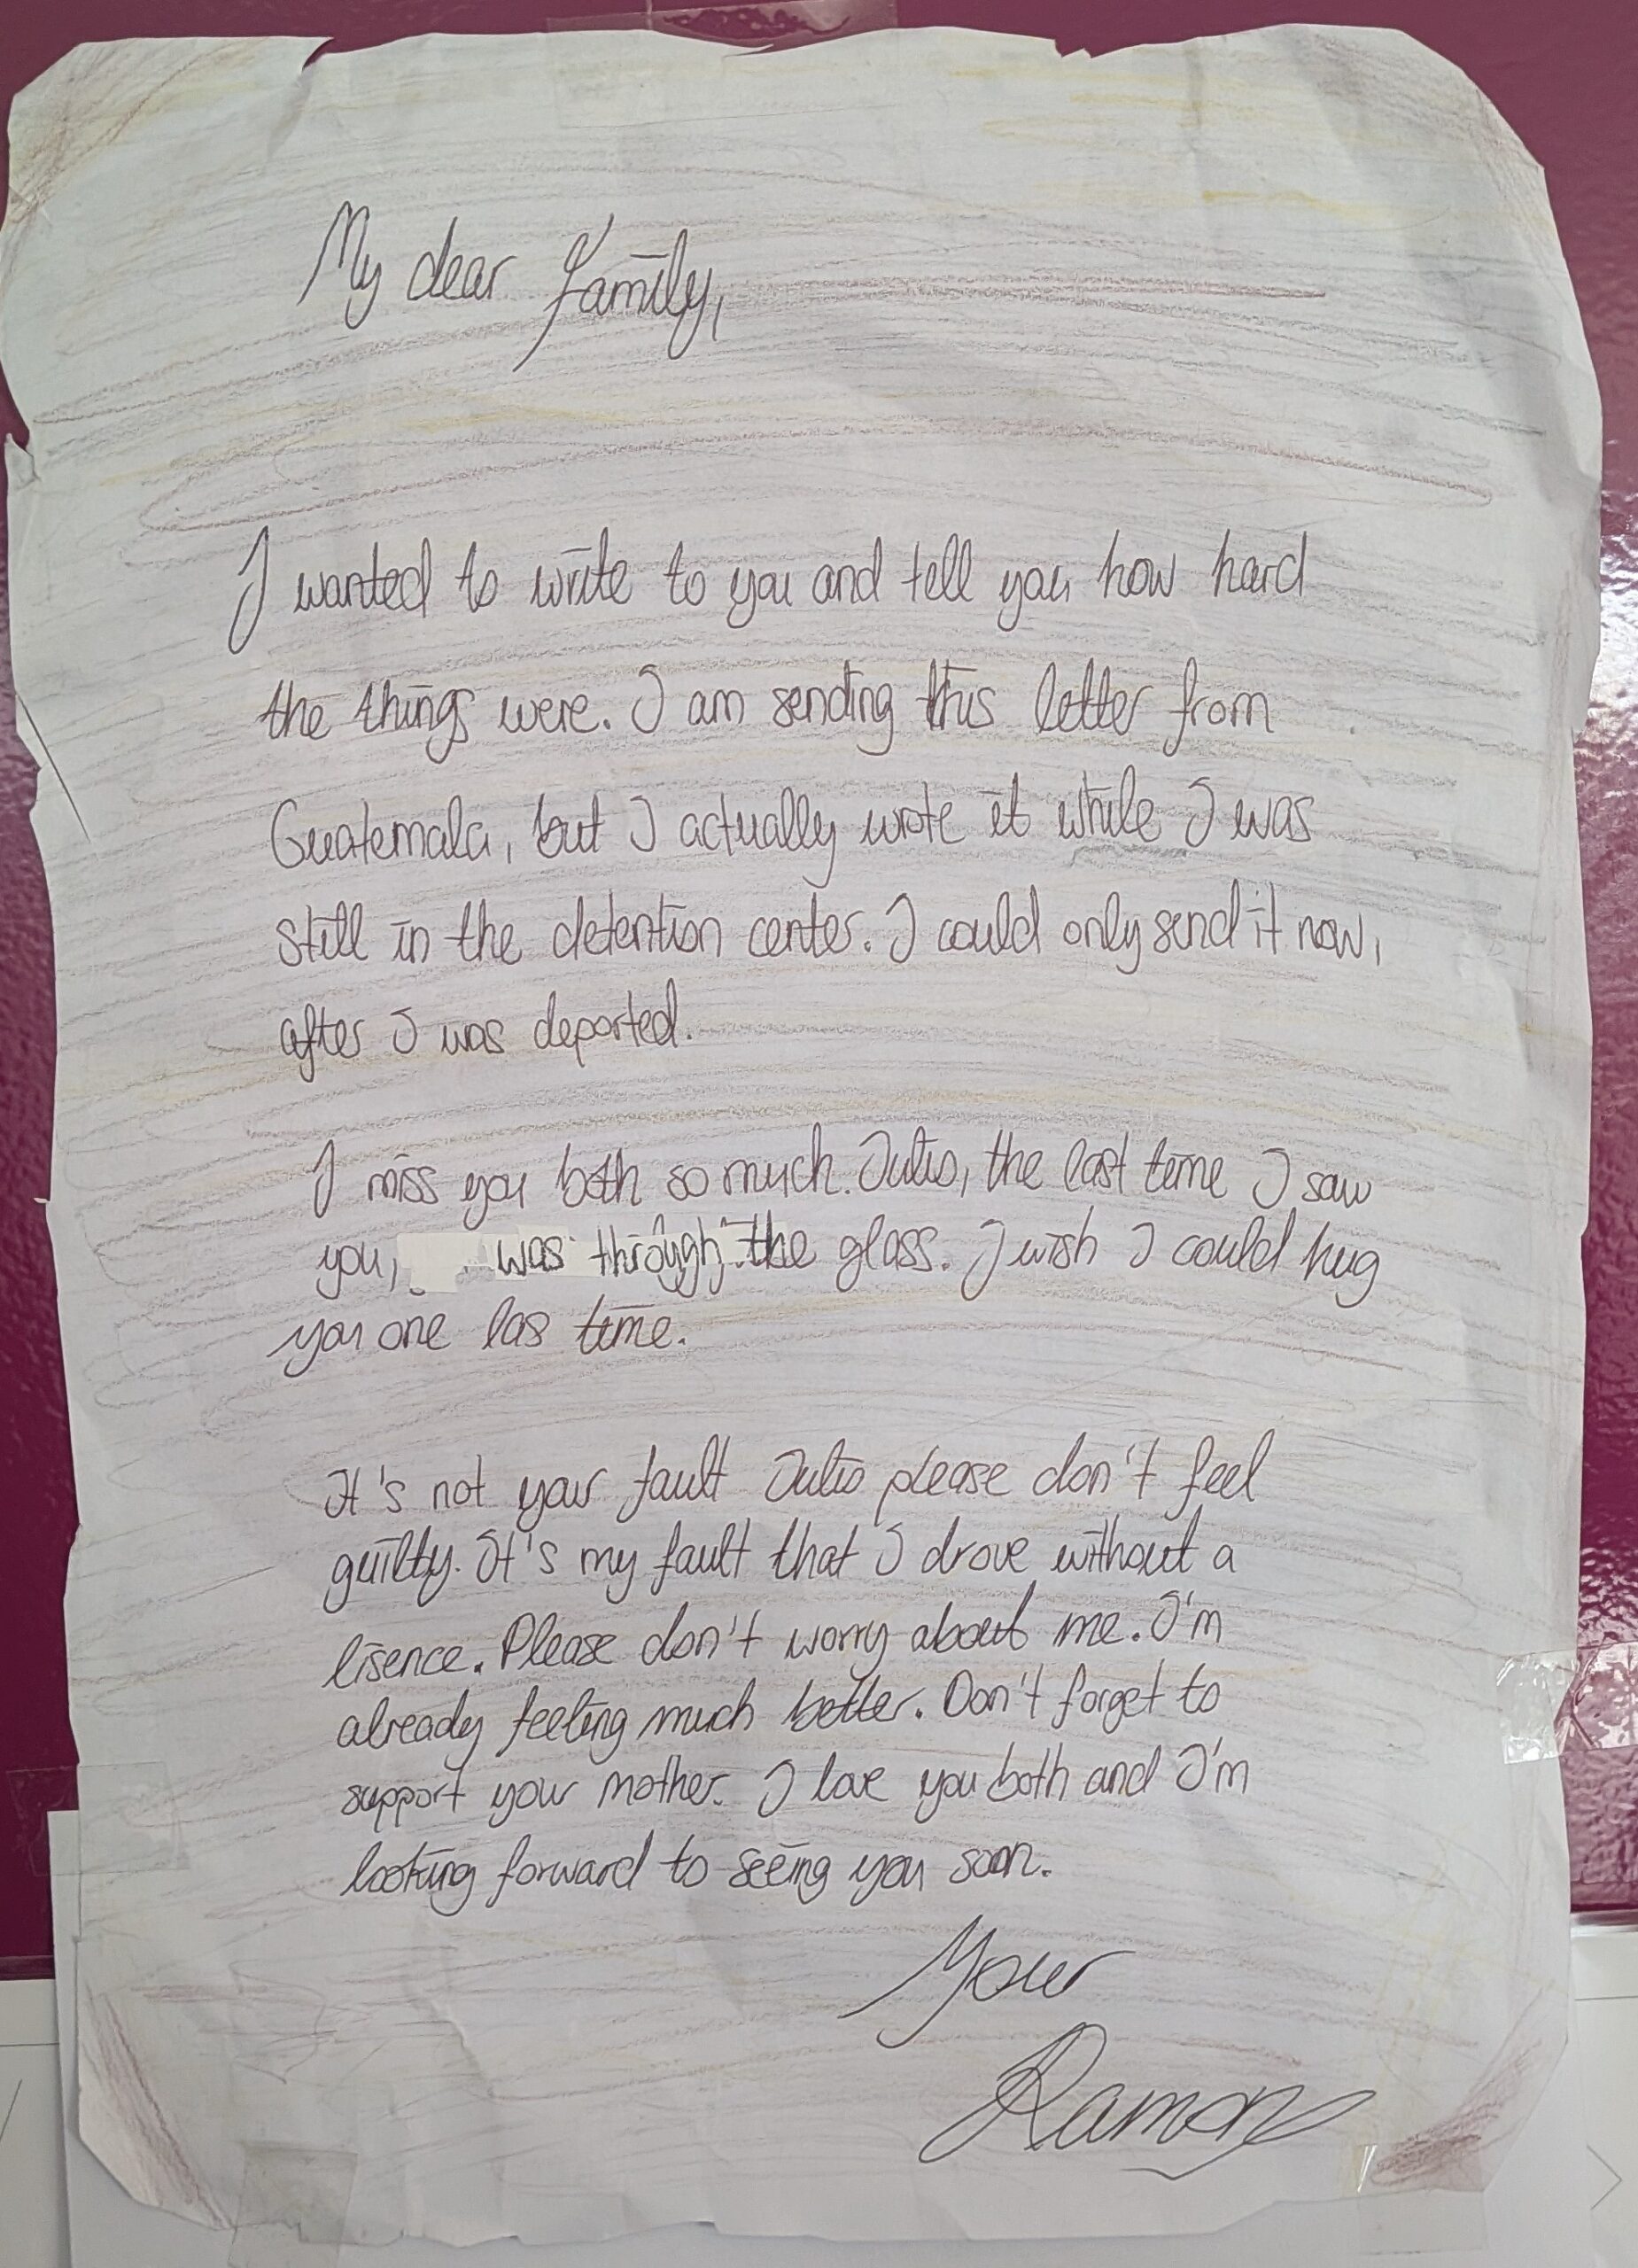 My dear family,
I wanted to write to you and tell you how hard
the things were. I am sending this letter from
Guatemala, but I actually wrote it while I was
still in the detention center. I could only send it now,
after I was deported.
I miss you both so much. Julio, the last time I saw
you, was through the glass. I wish I could hug
you one las time.
It's not your fault Julio please don't feel
guilty. It's my fault that I drove without a
lisence. Please don't worry about me. I'm
already feeling much better. Don't forget to
support your mother. I love you both and I'm
looking forward to seeing you soon.
Your
Ramon